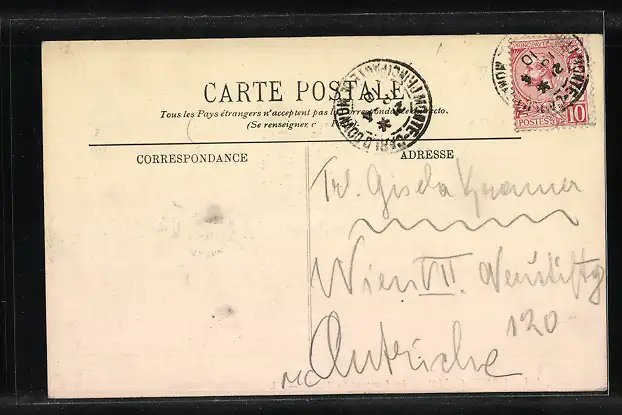 CARTE POSTALE
Tous les Pays étrangers n'acceptent pas la Correspondance au recto.
(Se renseigner
CORRESPONDANCE
ADRESSE
MONTE-CARLO
PRINCIPAUTÉ
10
POSTES
Frl. Gisela Kramer
Wien VII. Neustiftg
120
Autriche